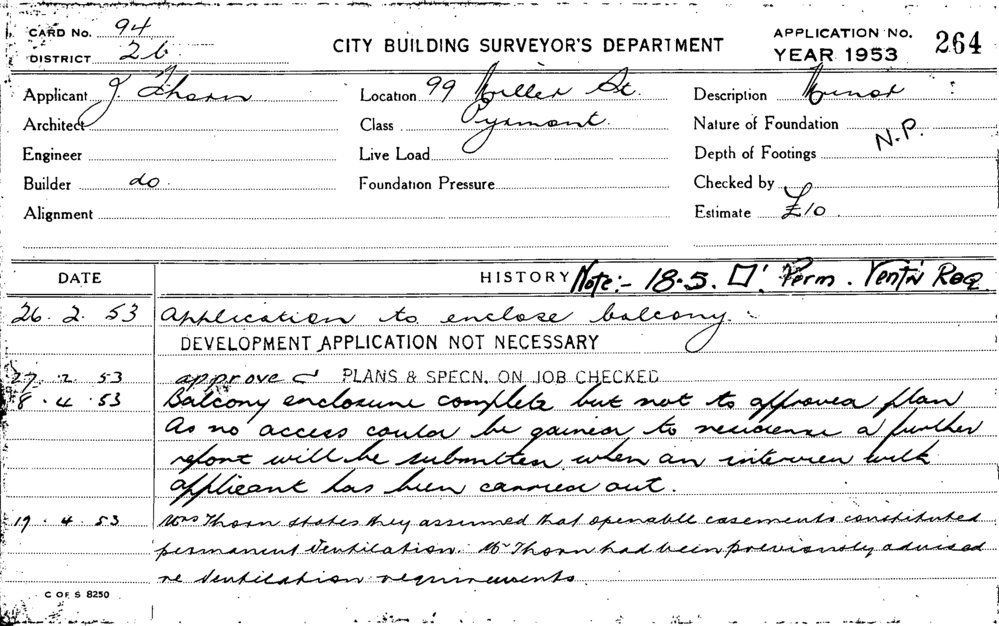 CARD No. 94
DISTRICT 26
CITY BUILDING SURVEYOR'S DEPARTMENT
APPLICATION No. 264
YEAR 1953
Applicant J. Thorn
Location 99 Miller St.
Description Minor
Architect
Class Pyrmont.
Nature of Foundation N.P.
Engineer
Live Load
Depth of Footings
Builder do
Foundation Pressure
Checked by
Alignment
Estimate £10
DATE
HISTORY Note:- 18.5. □' Perm. Vent'n Req.
26. 2. 53 Application to enclose balcony.
DEVELOPMENT APPLICATION NOT NECESSARY
27. 2. 53 approved PLANS & SPECN. ON JOB CHECKED
8. 4. 53 Balcony enclosure complete but not to approved plan
As no access could be gained to residence a further
report will be submitted when an interview with
applicant has been carried out.
19. 4. 53 Mrs Thorn states they assumed that openable casements constituted
permanent ventilation. Mr Thorn had been previously advised
re ventilation requirements.
C OF S 8250